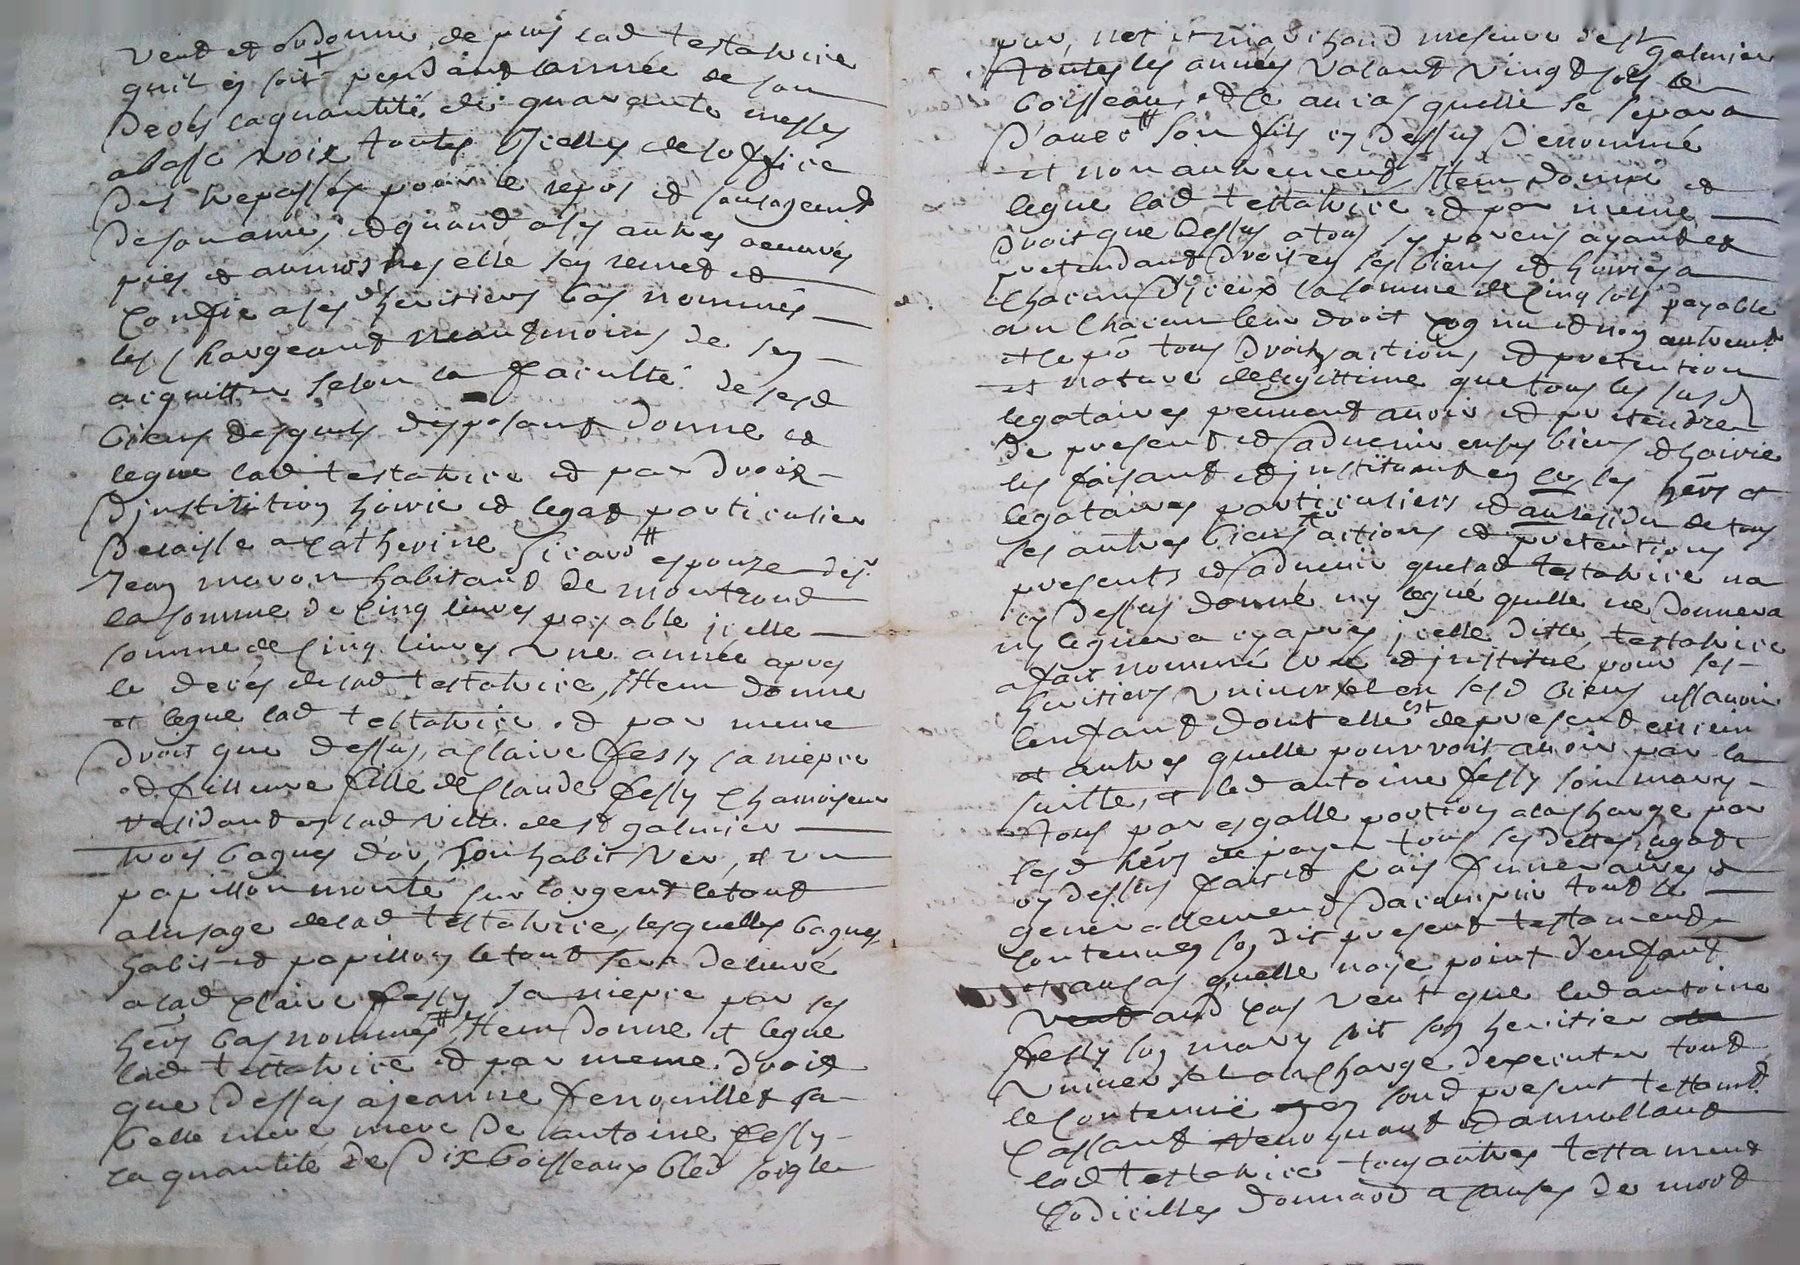 veut et ordonne de plus lad testatrice
qu'il ÿ soit pendant lannée de son
deces la quantité de quarante messes
a basse voix toutes icelles de loffice
des trepassés pour le repos et soulagement
de son ame, et quand a ses autres oeuvres
pies et aumosnes elle sen remet et
confie a ses heritiers bas nommés
les chargeant neantmoins de sen
acquitter selon la faculté de sesd
biens desquels disposant donne et
legue lad testatrice et par droit
d'institution hoirie et legat particulier
delaisse a catherine sicard espouze de sr
Jean mavon habitant de montrond
la somme de cinq livres payable icelle
somme de cinq livres une année apres
le deces de lad testatrice, Item donne
et legue lad testatrice et par meme
droit que dessus, a claire fessy sa niepce
et filleure fille de claude fessy chamoiseur
residant en lad ville de st galmier
trois bagues d'or, son habit ver, et un
papillon monté sur l'argent le tout
a lusage de lad testatrice, lesquelles bagues
habit et papillon le tout sera delivré
a lad claire fessy sa niepce par ses
hers bas nommés Item donne et legue
lad testatrice et par meme droit
que dessus a jeanne fenouillet sa
belle mere mere de antoine fessy
la quantité de dix boisseaux bled soigle
pur, net et marchand mesure de st galmier
toutes les années valant vingt sols le
boisseau, et ce au cas quelle se separa
d'avec son fils cy dessus denommé
et non autrement Item donne et
legue lad testatrice et par meme
droit que dessus a tous ses parens ayant et
pretendant droit en ses biens et hoirie a
chacun d'iceux la somme de cinq sols payable
a un chacun leur droit cognu et non autremt
et ce pō tous droits actions et pretention
et nature de legittime que tous les susd
legataires peuvent avoir et pretendre
de present et a l'advenir en ses biens et hoirie
les faisant et instituant en ce ses hers et
legataires particuliers et au residu de tous
ses autres biens actions et pretentions
presents et advenir que lad testatrice na
cy dessus donné ny legué quelle ne donnera
ny leguera cy apres icelle ditte testatrice
a fait nommé créé et institué pour ses
heritiers universel en sesd biens assavoir
lenfant dont elle est de present enceinte
et autres quelle pourroit avoir par la
suitte, et led antoine fessy son mary
tous par esgalle portion a la charge par
lesd hers de payer tous ses dettes, legats
cy dessus faits et frais funeraires et
generallement d'acomplir tout le
contenu en son dit present testament
et au cas quelle naye point d'enfant
aud cas veut que led antoine
fessy son mary soit son heritier
universel a la charge d'executer tout
le contenu en sond present testamt
cassant revoquant et annullant
lad testatrice tous autres testament
codicilles donnaon a causes de mort